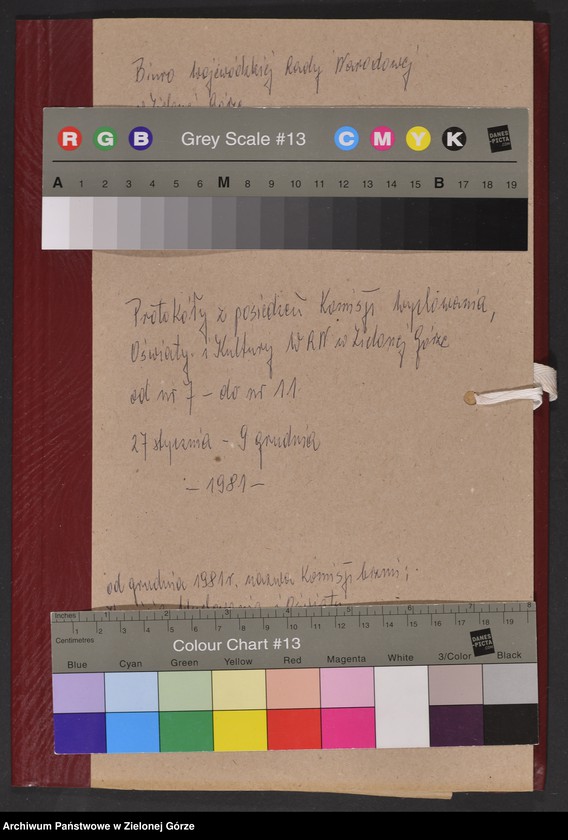 Biuro Wojewódzkiej Rady Narodowej
w Zielonej Górze
R G B Grey Scale #13 C M Y K DANES-PICTA.COM
A 1 2 3 4 5 6 M 8 9 10 11 12 13 14 15 B 17 18 19
Protokóły z posiedzeń Komisji Wychowania,
Oświaty i Kultury WRN w Zielonej Górze
od nr 7 - do nr 11
27 stycznia - 9 grudnia
- 1981 -
od grudnia 1981 r. nazwa Komisji brzmi:
Inches 1 2 3 4 5 6 7 8
Centimetres 1 2 3 4 5 6 7 8 9 10 11 12 13 14 15 16 17 18 19
Colour Chart #13 DANES-PICTA.COM
Blue Cyan Green Yellow Red Magenta White 3/Color Black
Archiwum Państwowe w Zielonej Górze